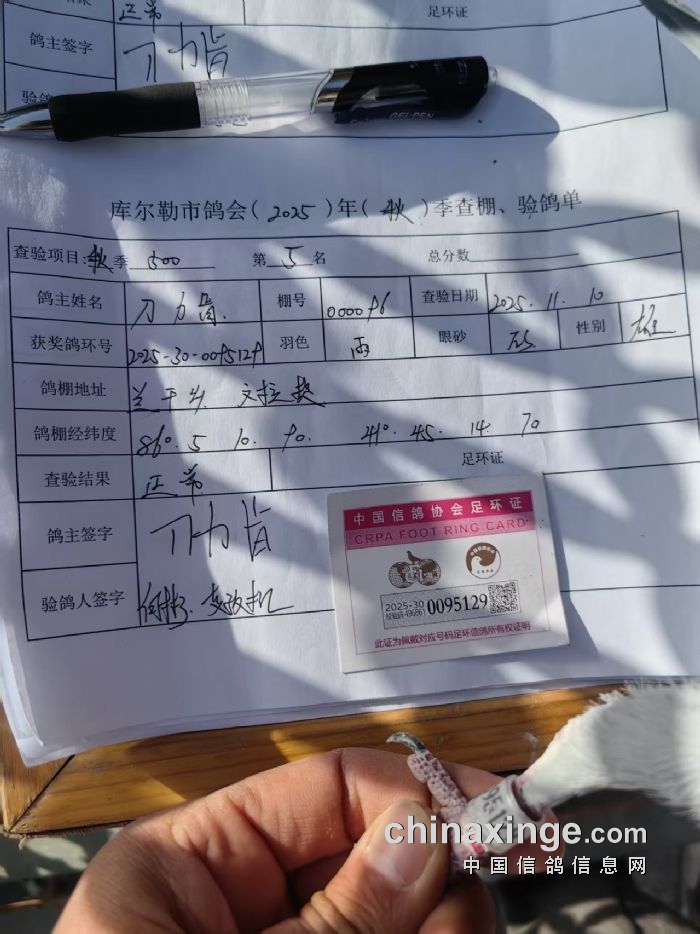 正常
足环证
鸽主签字
验鸽
GEL PEN
库尔勒市鸽会(2025)年(秋)季查棚、验鸽单
查验项目:秋季 500 第 5 名 总分数
鸽主姓名 棚号 000096 查验日期 2025.11.10
获奖鸽环号 2025-30-0095129 羽色 雨 眼砂 性别 雄
鸽棚地址 兰干乡
鸽棚经纬度 86°.5 10.90. 41°.45.14.70
查验结果 正常 足环证
鸽主签字
验鸽人签字
中国信鸽协会足环证
CRPA FOOT RING CARD
2025-30 0095129
此证为佩戴对应号码足环信鸽所有权证明
chinaxinge.com
中国信鸽信息网